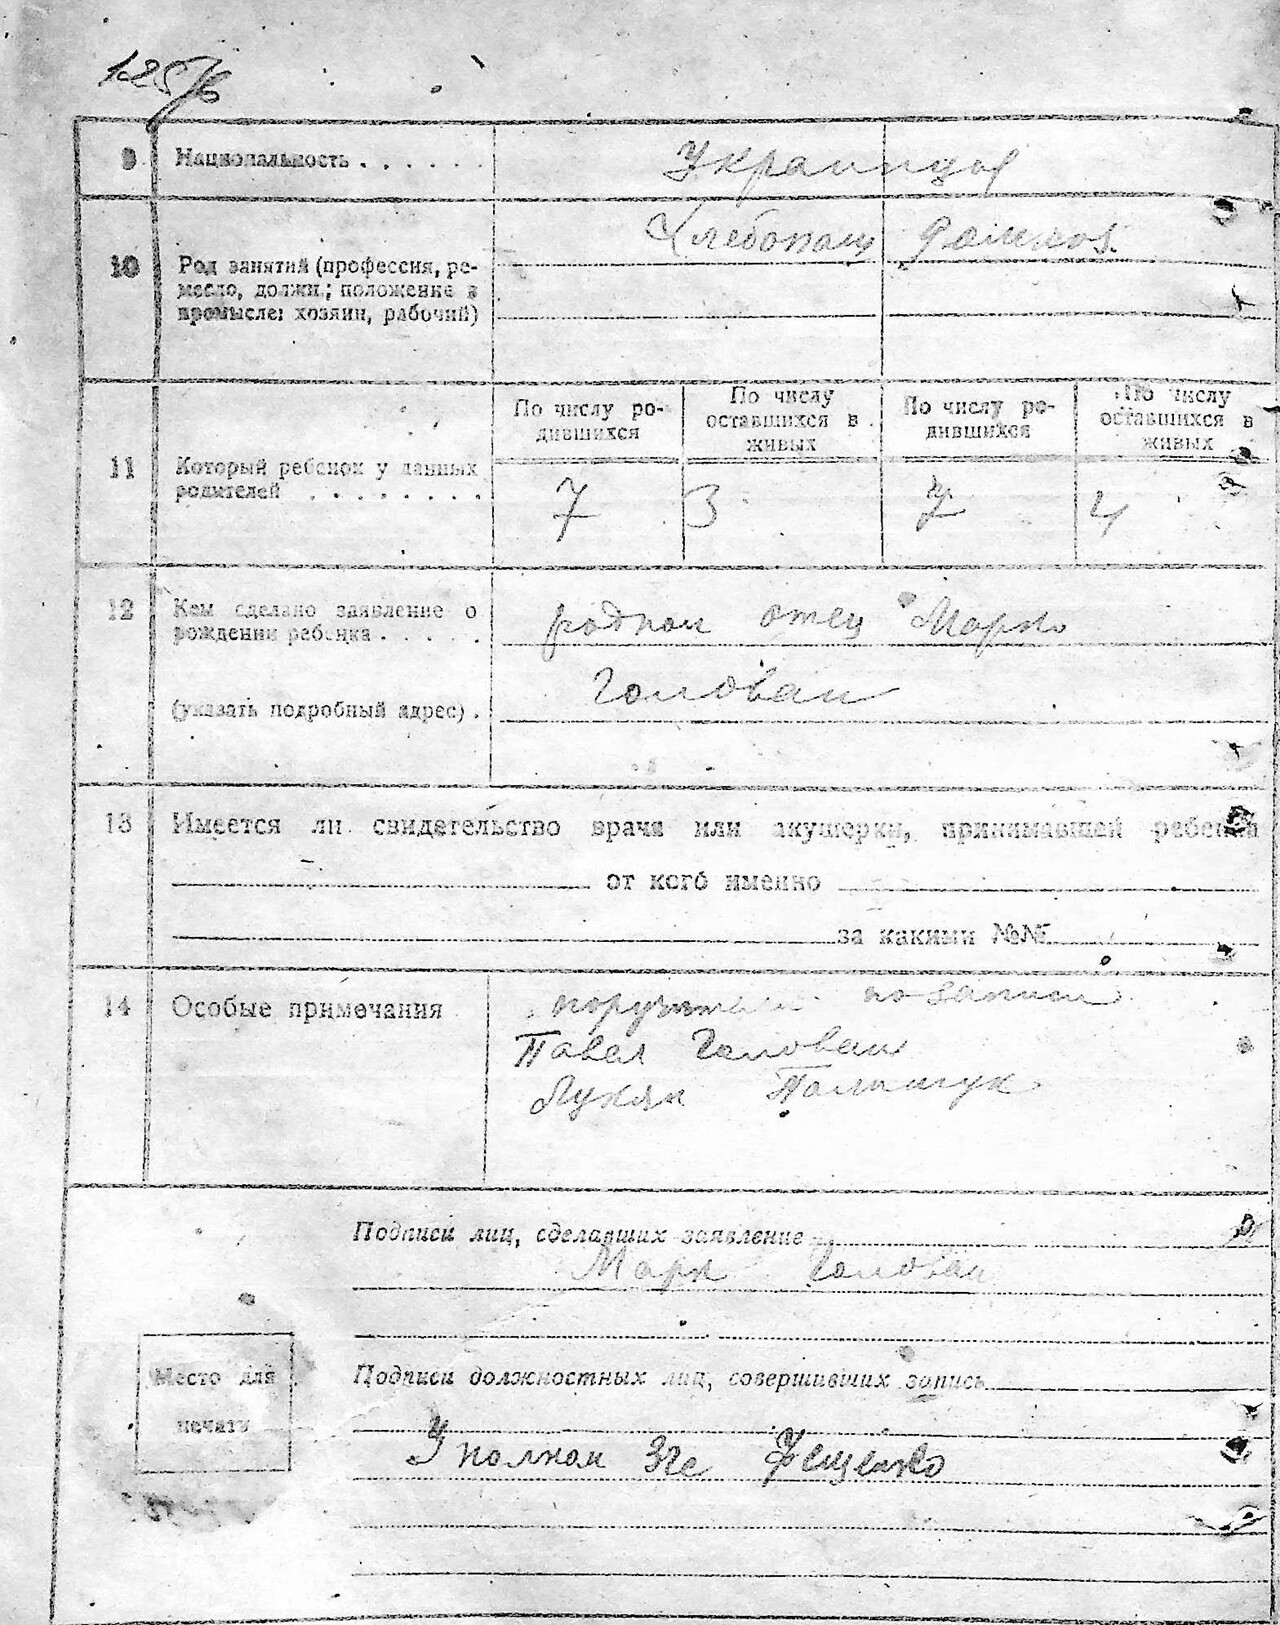 9 Национальность . . . . . .
Украинцы
10 Род занятий (профессия, ре-
месло, должн.; положение в
промысле: хозяин, рабочий)
Хлебопаш
11 Который ребенок у данных
родителей . . . . . . . .
По числу ро-
дившихся
По числу
оставшихся в
живых
По числу ро-
дившихся
По числу
оставшихся в
живых
7 3 7 4
12 Кем сделано заявление о
рождении ребенка . . . . .
(указать подробный адрес) .
родной отец Марко
Голован
13 Имеется ли свидетельство врача или акушерки, принимавшей ребенка
от кого именно
за какими №№
14 Особые примечания
по записи
Павел Голован
Лукян Полищук
Подписи лиц, сделавших заявление
Марк Голован
Место для
печати
Подписи должностных лиц, совершивших запись
Уполном Фещенко